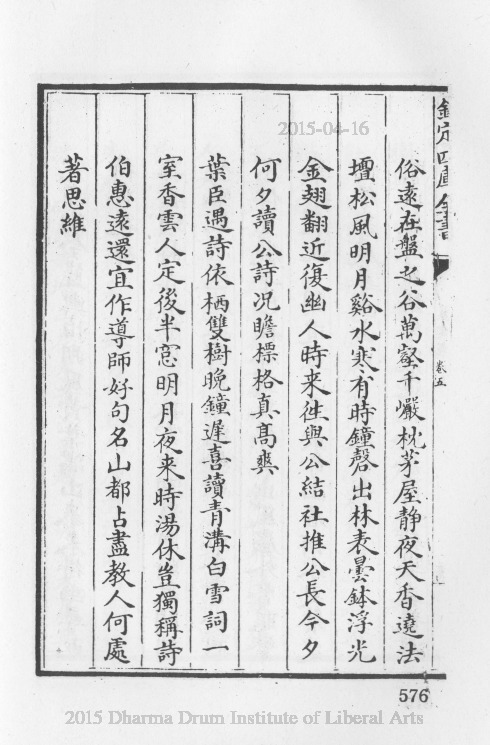 欽定四庫全書
卷五
俗遠在盤之谷萬壑千巖枕茅屋靜夜天香遶法
壇松風明月谿水寒有時鐘磬出林表曇鉢浮光
金翅翻近復幽人時來徃與公結社推公長今夕
何夕讀公詩况瞻標格真髙爽
葉臣遇詩依栖雙樹晚鐘遲喜讀青溝白雪詞一
室香雲人定後半窓明月夜来時湯休豈獨稱詩
伯惠遠還宜作導師好句名山都占盡教人何處
著思維
576
2015-04-16
2015 Dharma Drum Institute of Liberal Arts